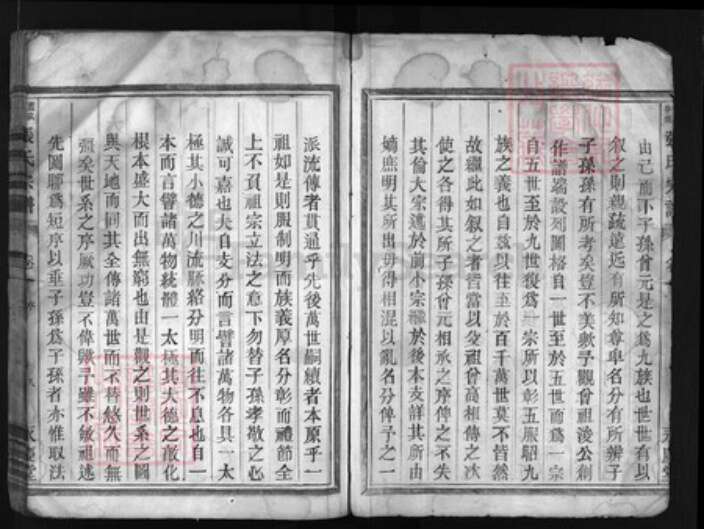 由己而下子孫曾元是之爲九族也世世有以
叙之則親疏遠近有所知尊卑名分有所辨子
子孫孫有所考矣豈不美歟予觀曾祖淩公創
作譜端設列圖格自一世至於五世而爲一宗
自五世至於九世復爲一宗所以彰五服昭九
族之義也自茲以往至於百千萬世莫不皆然
故繼此如叙之者言當以父祖曾高相傳之次
使之各得其所子孫曾元相承之序俾之不失
其倫大宗遞於前小宗繼於後本支詳其所由
嫡庶明其所出毋得相混以亂名分俾予之一
派流傳者貫通乎先後萬世嗣續者本原乎一
祖如是則服制明而族義厚名分彰而禮節全
上不負祖宗立法之意下勿替子孫孝敬之心
誠可嘉也夫自支分而言譬諸萬物各具一太
極其小德之川流脈絡分明而往不息也自一
本而言譬諸萬物統體一太極其大德之敦化
根本盛大而出無窮也由是觀之則世系之圖
與天地而同其全傳諸萬世而不替悠久而無
疆矣世系之序厥功豈不偉歟予雖不敏祖述
先圖聊爲短序以垂子孫爲子孫者亦惟取法
張氏宗譜
永慶堂